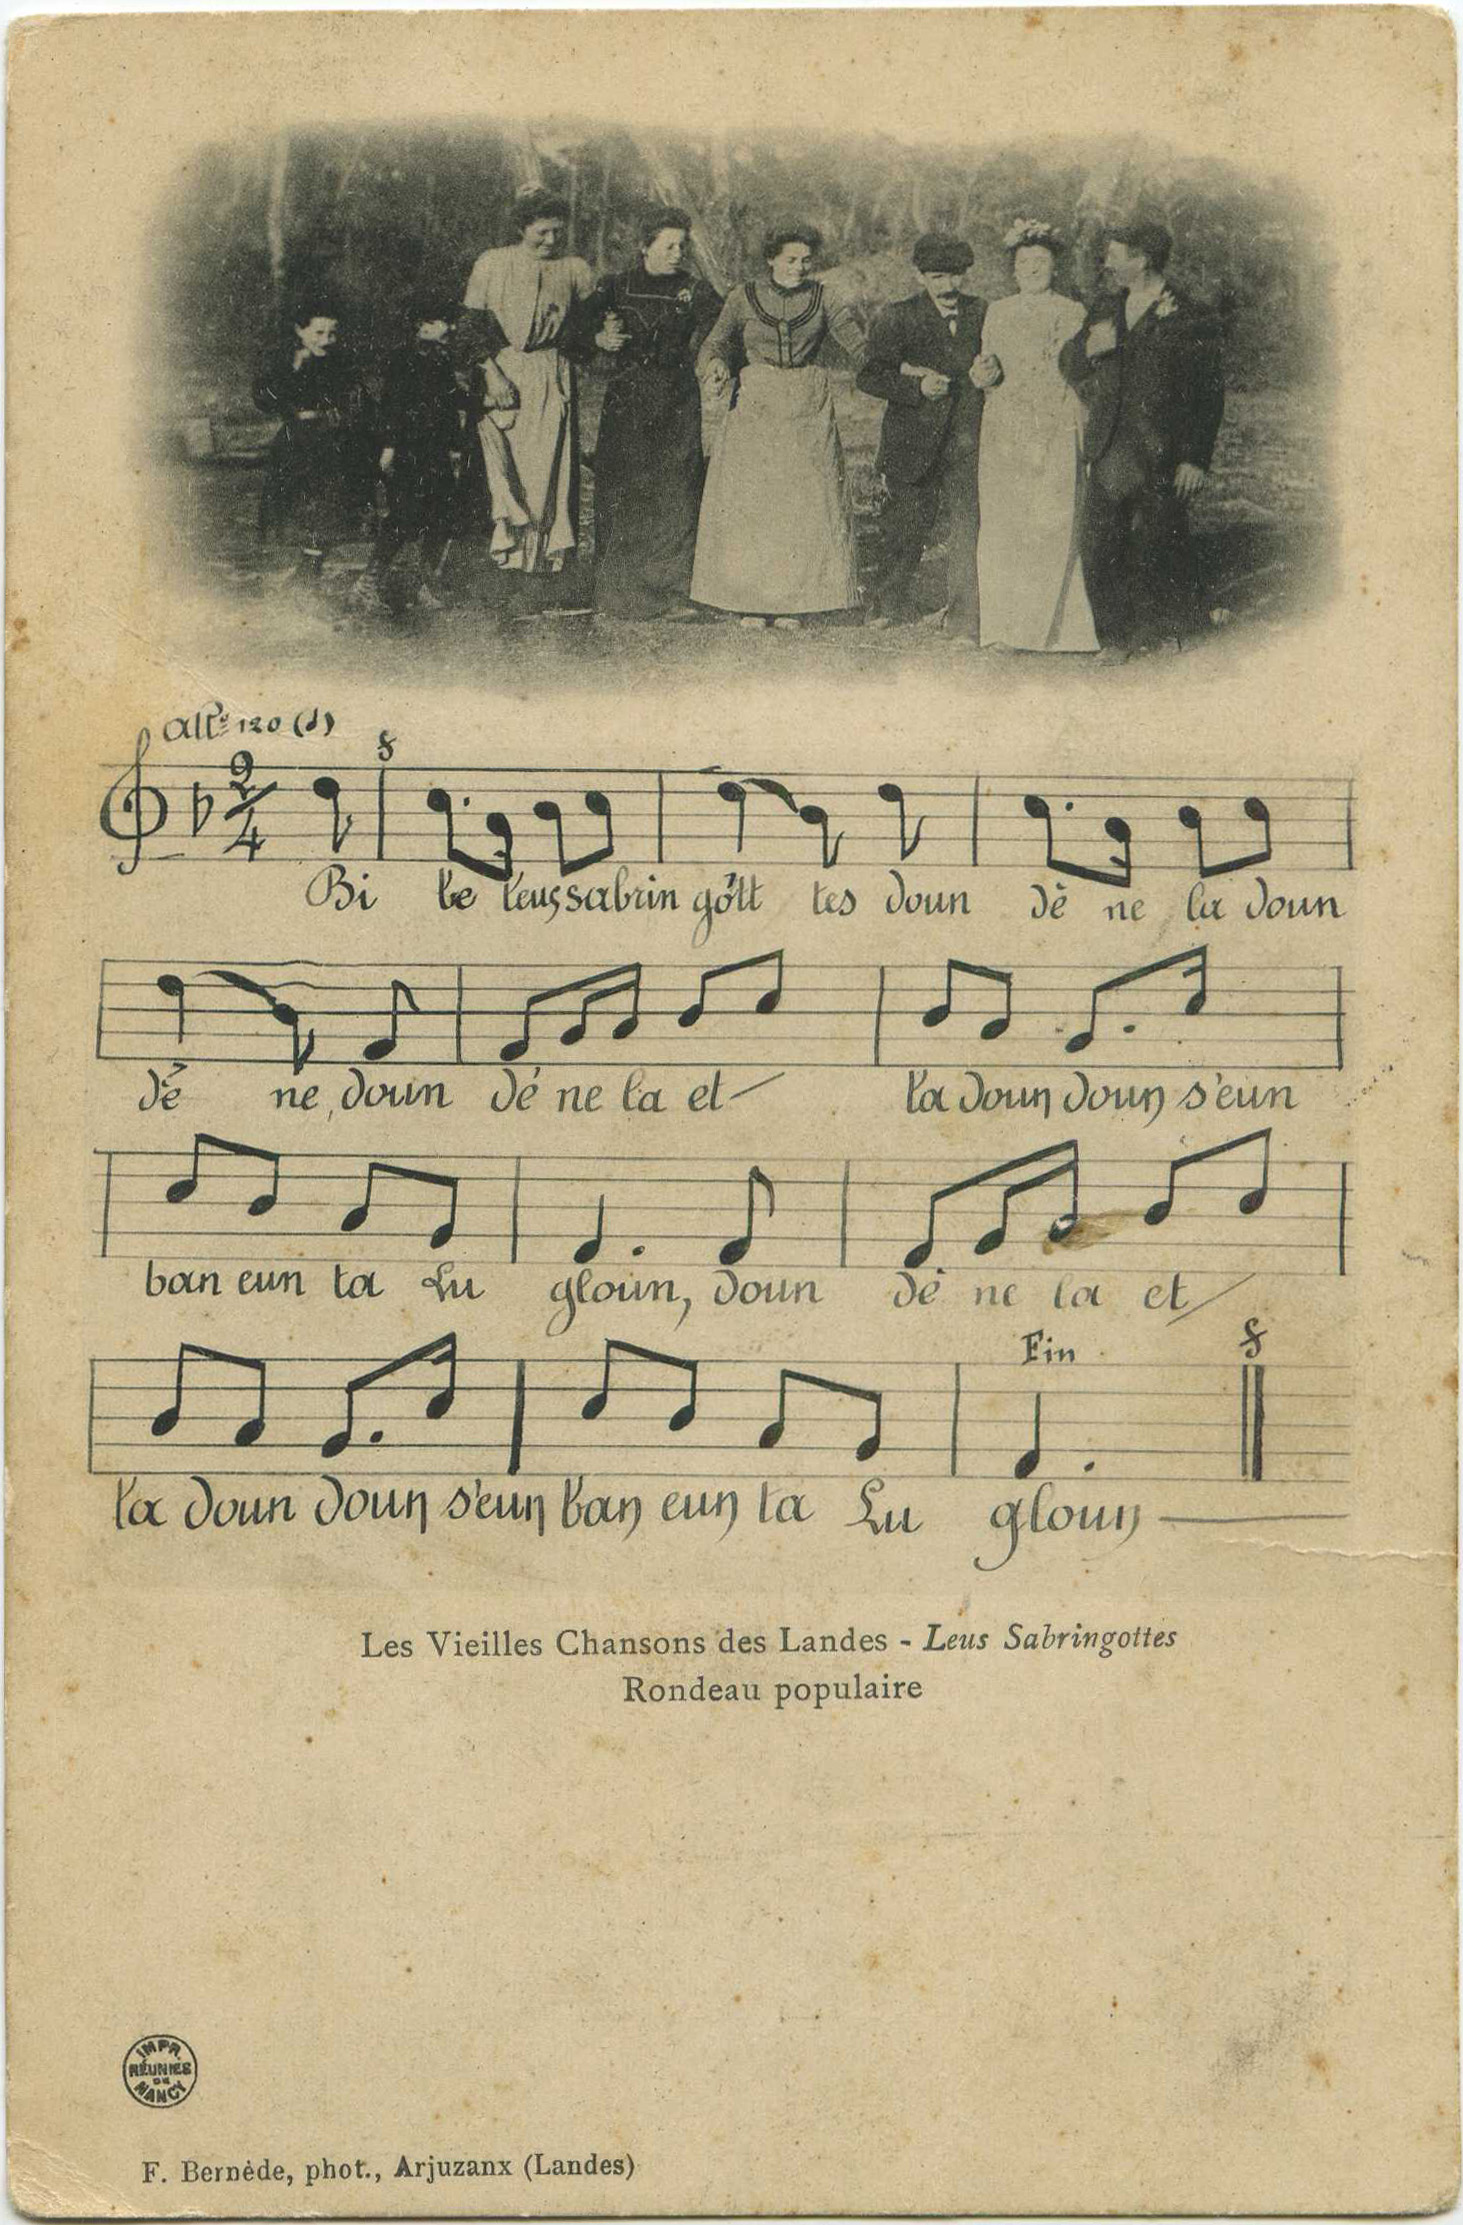 All⁰ 120 (♩)
2/4
Bi be leus sabrin gott tes doun dè ne la doun
dé ne, doun dé ne la et
la doun doun s'eun
ban eun ta Lu gloun, doun dè ne la et
Fin
la doun doun s'eun ban eun ta Lu gloun
Les Vieilles Chansons des Landes - Leus Sabringottes
Rondeau populaire
IMPR. RÉUNIES DE NANCY
F. Bernède, phot., Arjuzanx (Landes)